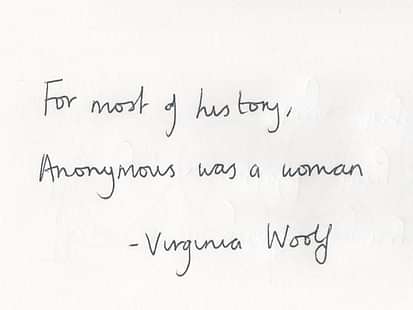 For most of history,
Anonymous was a woman
- Virginia Woolf